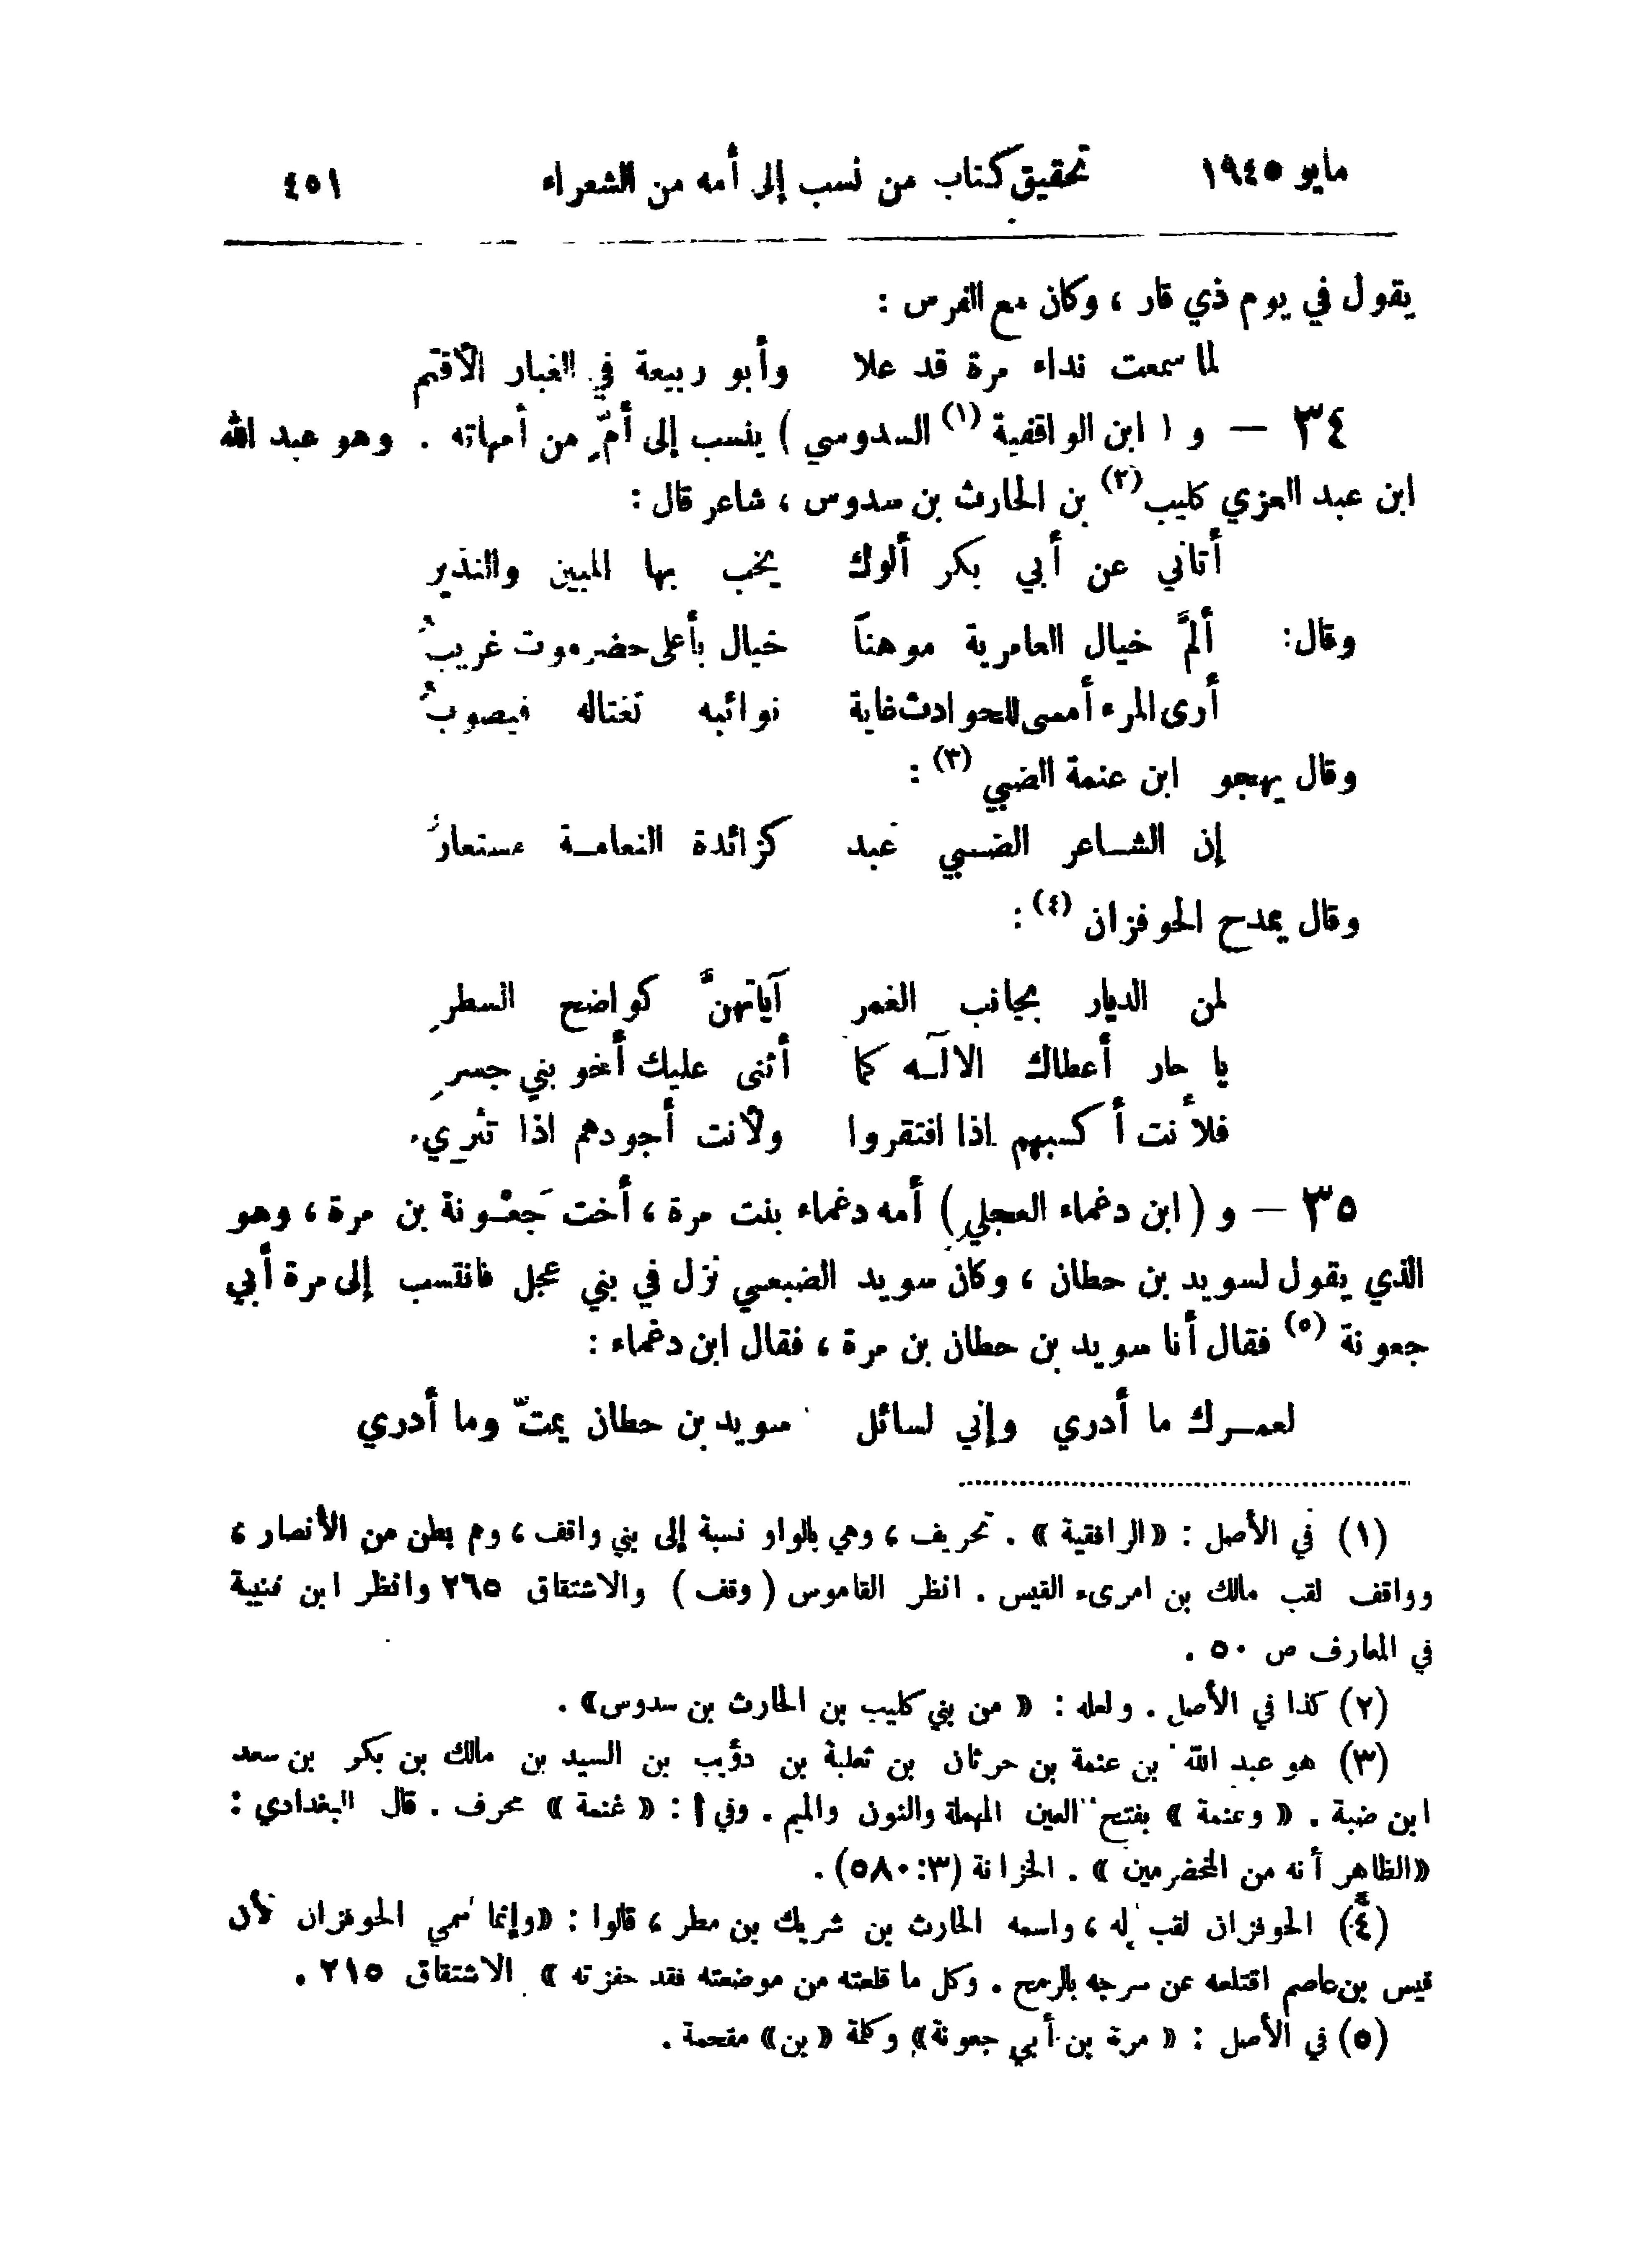 مايو ١٩٤٥ تحقيق كتاب من نسب إلى أمه من الشعراء ٤٥١
يقول في يوم ذي قار ، وكان مع الفرس :
لما سمعت نداء مرة قد علا وأبو ربيعة في الغبار الأقتم
٣٤ — و ( ابن الواقفية (١) السدوسي ) ينسب إلى أمٍّ من أمهاته . وهو عبد الله
ابن عبد العزي كليب (٢) بن الحارث بن سدوس ، شاعر قال :
أتاني عن أبي بكر ألوك يخب بها المبين والنذير
وقال : ألمَّ خيال العامرية موهناً خيال بأعلى حضرموت غريبُ
أرى المرء أمسى للحوادث غاية نوائبه تغتاله فيصوبُ
وقال يهجو ابن عنمة الضبي (٣) :
إن الشاعر الضبي عبد كزائدة النعامة مستعارُ
وقال يمدح الحوفزان (٤) :
لمن الديار بجانب الغمر آياتهنَّ كواضح السطرِ
يا حار أعطاك الالٓه كما أثنى عليك أخو بني جسرِ
فلأنت أكسبهم اذا افتقروا ولأنت أجودهم اذا تثري.
٣٥ — و ( ابن دغماء العجلي ) أمه دغماء بنت مرة ، أخت جَعْونة بن مرة ، وهو
الذي يقول لسويد بن حطان ، وكان سويد الضبعي نزل في بني عجل فانتسب إلى مرة أبي
جعونة (٥) فقال أنا سويد بن حطان بن مرة ، فقال ابن دغماء :
لعمرك ما أدري وإني لسائل سويد بن حطان يمتّ وما أدري
(١) في الأصل : « الرافقية » . تحريف ، وهي بالواو نسبة إلى بني واقف ، وهم بطن من الأنصار ،
وواقف لقب مالك بن امرىء القيس . انظر القاموس ( وقف ) والاشتقاق ٢٦٥ وانظر ابن قتيبة
في المعارف ص ٥٠ .
(٢) كذا في الأصل . ولعله : « من بني كليب بن الحارث بن سدوس » .
(٣) هو عبد الله بن عنمة بن حرثان بن ثعلبة بن ذؤيب بن السيد بن مالك بن بكر بن سعد
ابن ضبة . « وعنمة » بفتح العين المهملة والنون والميم . وفي أ : « غنمة » محرف . قال البغدادي :
«الظاهر أنه من المخضرمين » . الخزانة (٥٨٠:٣) .
(٤) الحوفزان لقب له ، واسمه الحارث بن شريك بن مطر ، قالوا : «وإنما سمي الحوفزان لأن
قيس بن عاصم اقتلعه عن سرجه بالرمح . وكل ما قلعته من موضعته فقد حفزته » الاشتقاق ٢١٥ .
(٥) في الأصل : « مرة بن أبي جعونة» وكلمة « بن» مقحمة .